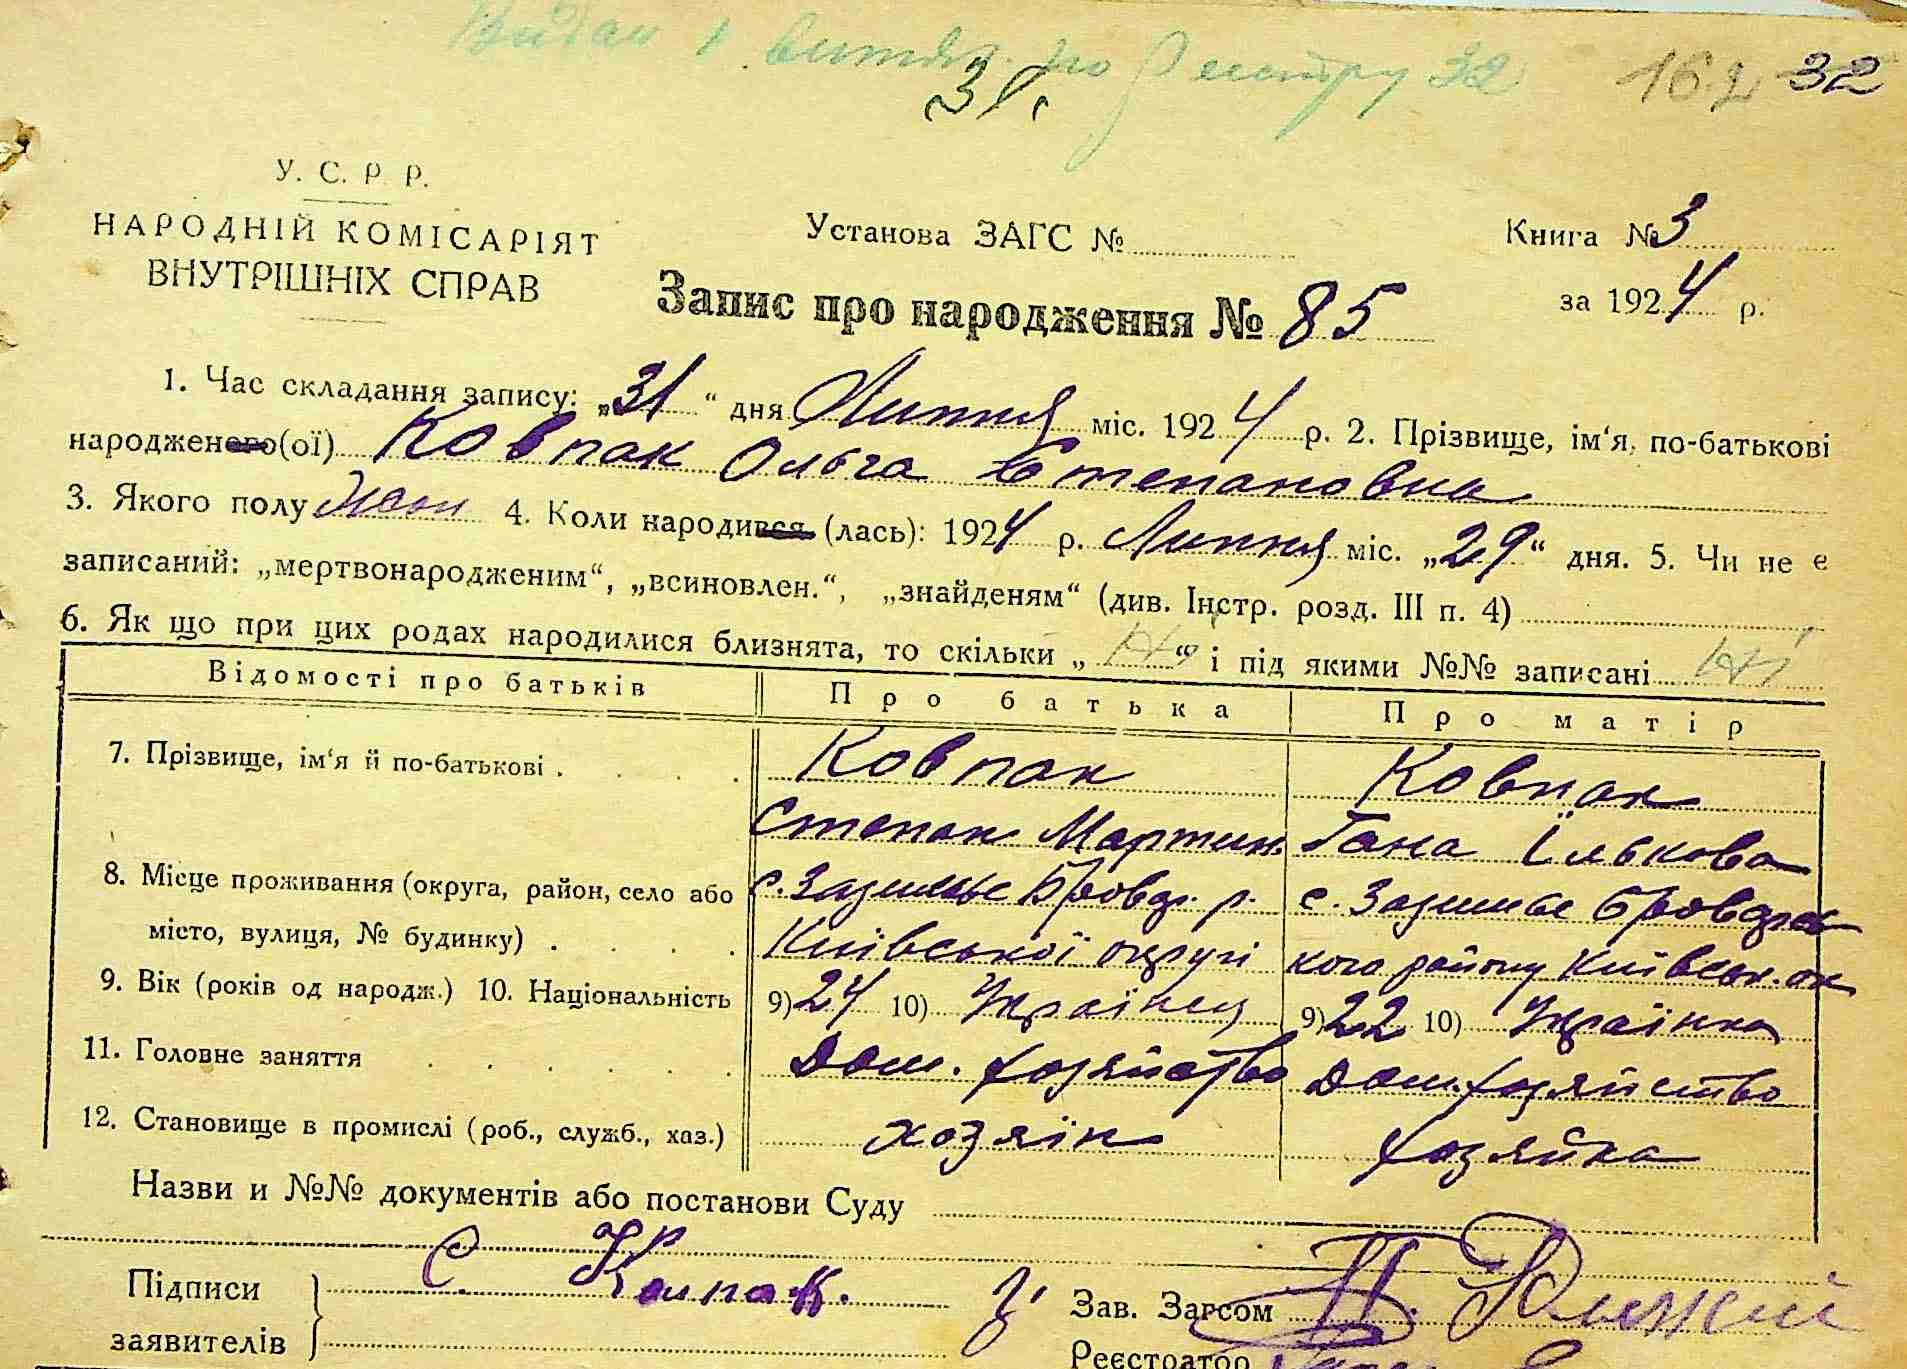 Видан 1 витяг по Реєстру 32
31.
162 32
У. С. Р. Р.
НАРОДНІЙ КОМІСАРІЯТ
ВНУТРІШНІХ СПРАВ
Установа ЗАГС №
Книга № 3
за 1924 р.
Запис про народження № 85
1. Час складання запису: „31“ дня Липня міс. 1924 р. 2. Прізвище, ім‘я, по-батькові
народженого(ої) Ковпак Ольга Степановна
3. Якого полу Жен 4. Коли народився (лась): 1924 р. Липня міс. „29“ дня. 5. Чи не є
записаний: „мертвонародженим“, „всиновлен.“, „знайденям“ (див. Інстр. розд. III п. 4)
6. Як що при цих родах народилися близнята, то скільки „ “ і під якими №№ записані
Відомості про батьків Про батька Про матір
7. Прізвище, ім‘я й по-батькові . . . . Ковпак Ковпак
Степан Мартин. Гана Ількова
8. Місце проживання (округа, район, село або с. Зазимье Бровар. р. с. Зазимье Броварсь
місто, вулиця, № будинку) . . . . Київської округи кого району Київськ. ок
9. Вік (років од народж.) 10. Національність 9) 24 10) Українец 9) 22 10) Українка
11. Головне заняття . . . . . . Дом. хозяйство Дом. хозяйство
12. Становище в промислі (роб., служб., хаз.) хозяїн хозяйка
Назви и №№ документів або постанови Суду
Підписи С. Колпак. Зав. Загсом П.
заявителів Реєстратор